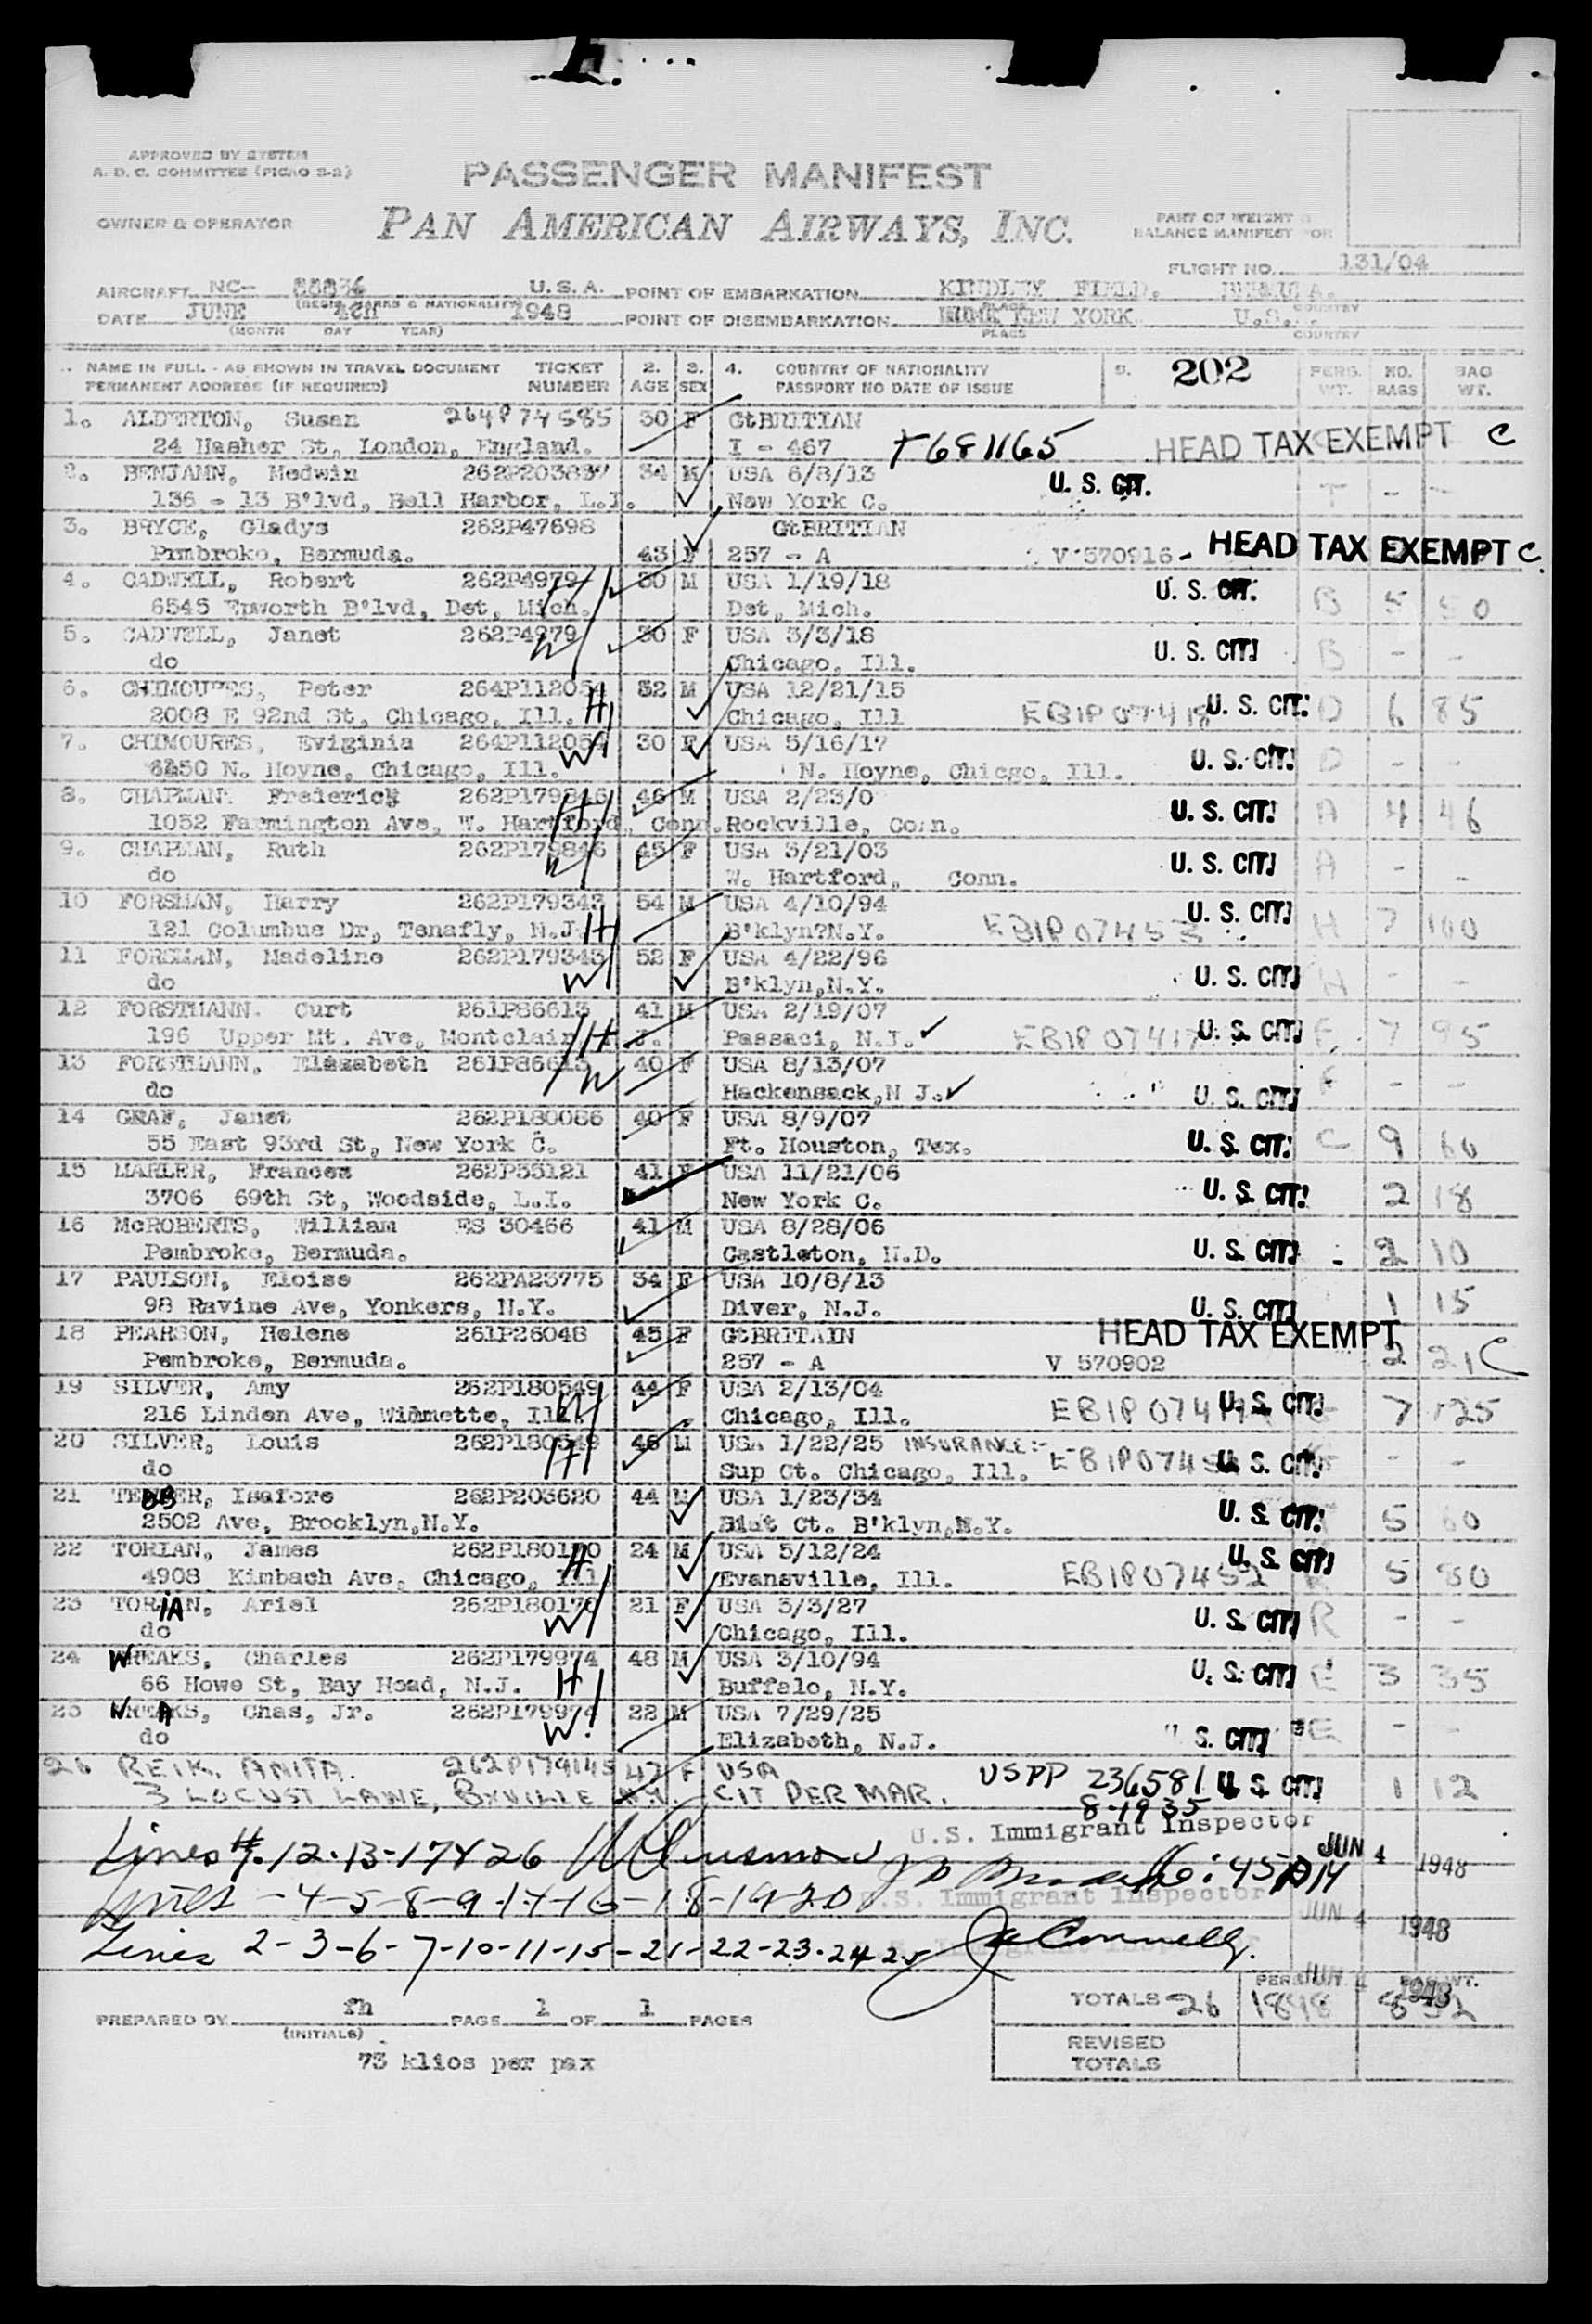 APPROVED BY SYSTEM
A. D. C. COMMITTEE (PICAO S-2)
PASSENGER MANIFEST
OWNER & OPERATOR
PAN AMERICAN AIRWAYS, INC.
PART OF WEIGHT &
BALANCE MANIFEST FOR
FLIGHT NO. 131/04
AIRCRAFT NC- U.S.A. POINT OF EMBARKATION KINDLEY FIELD.
(REGIS. MARKS & NATIONALITY) PLACE COUNTRY
DATE JUNE 4th 1948 POINT OF DISEMBARKATION NEW YORK U.S.
(MONTH DAY YEAR) PLACE COUNTRY
NAME IN FULL - AS SHOWN IN TRAVEL DOCUMENT TICKET 2. 3. 4. COUNTRY OF NATIONALITY 5. 202 PERS. NO. BAG
PERMANENT ADDRESS (IF REQUIRED) NUMBER AGE SEX PASSPORT NO DATE OF ISSUE WT. BAGS WT.
1. ALDERTON, Susan 264P74585 30 F GtBRITIAN
24 Hasher St, London, England. I - 467 HEAD TAX EXEMPT C
2. BENJAMN, Medwin 34 M USA 6/8/13 U. S. CIT.
136 - 13 B'lvd, Bell Harbor, L.I. New York C. T - -
3. BRYCE, Gladys 262P47698 GtBRITIAN
Pembroke, Bermuda. 43 F 257 - A V 570916 - HEAD TAX EXEMPT C.
4. CADWELL, Robert 262P4979 30 M USA 1/19/18 U. S. CIT.
6545 Epworth B'lvd, Det, Mich. H Det, Mich. B 5 50
5. CADWELL, Janet 262P4979 30 F USA 3/3/18 U. S. CIT.
do W Chicago, Ill. B - -
6. CHIMOURES, Peter 32 M USA 12/21/15
2008 E 92nd St, Chicago, Ill. H Chicago, Ill EBIP 07418 U. S. CIT. D 6 85
7. CHIMOURES, Eviginia 264P112054 30 F USA 5/16/17
6450 N. Hoyne, Chicago, Ill. W N. Hoyne, Chicgo, Ill. U. S. CIT. D - -
8. CHAPMAN. Frederick 262P179846 46 M USA 2/23/0
1052 Farmington Ave, W. Hartford, Conn. H Rockville, Conn. U. S. CIT. A 4 46
9. CHAPMAN, Ruth 262P179846 45 F USA 3/21/03
do W W. Hartford, Conn. U. S. CIT. A - -
10 FORSMAN, Harry 262P179343 54 M USA 4/10/94 U. S. CIT.
121 Columbus Dr, Tenafly, N.J. H B'klyn?N.Y. EBIP 07453 H 7 100
11 FORSMAN, Madeline 262P179343 52 F USA 4/22/96
do W B'klyn,N.Y. U. S. CIT. H - -
12 FORSTMANN. Curt 261P86613 41 M USA 2/19/07
196 Upper Mt. Ave, Montclair H J. Passaci, N.J. EBIP 07417 U. S. CIT. F 7 95
13 FORSTMANN, Elazabeth 261P86613 40 F USA 8/13/07
do W Hackensack,N J. U. S. CIT. F - -
14 GRAF, Janet 262P180086 40 F USA 8/9/07
55 East 93rd St, New York C. Ft. Houston, Tex. U. S. CIT. C 9 60
15 MARLER, Frances 262P55121 41 F USA 11/21/06
3706 69th St, Woodside, L.I. New York C. U. S. CIT. 2 18
16 McROBERTS, William ES 30466 41 M USA 8/28/06
Pembroke, Bermuda. Castleton, N.D. U. S. CIT. 2 10
17 PAULSON, Eloise 262PA23775 34 F USA 10/8/13
98 Ravine Ave, Yonkers, N.Y. Diver, N.J. U. S. CIT. 1 15
18 PEARSON, Helene 261P26048 45 F GtBRITAIN HEAD TAX EXEMPT
Pembroke, Bermuda. 257 - A V 570902 2 21 C
19 SILVER, Amy 262P180549 44 F USA 2/13/04
216 Linden Ave, Wilmette, Ill. W Chicago, Ill. U. S. CIT. 7 125
20 SILVER, Louis 262P180549 46 M USA 1/22/25 INSURANCE:-
do H Sup Ct. Chicago, Ill. U. S. CIT. - -
21 TEBBER, Isafore 262P203620 44 M USA 1/23/34
2502 Ave, Brooklyn,N.Y. Dist Ct. B'klyn,N.Y. U. S. CIT. 5 60
22 TORIAN, James 24 M USA 5/12/24 U. S. CIT.
4908 Kimbach Ave, Chicago, Ill H Evansville, Ill. EBIP07452 R 5 80
23 TORIAN, Ariel 262P180170 21 F USA 3/3/27
do W Chicago, Ill. U. S. CIT. R - -
24 WREAKS, Charles 262P179974 48 M USA 3/10/94
66 Howe St, Bay Head, N.J. H Buffalo, N.Y. U. S. CIT. E 3 35
25 WREAKS, Chas, Jr. 262P179974 22 M USA 7/29/25
do W Elizabeth, N.J. S. CIT. E - -
26 REIK, ANITA. 262P179145 47 F USA USPP 236581 U. S. CIT.
3 LOCUST LANE, BXVILLE N.Y. CIT PER MAR. 8-19 35 1 12
U.S. Immigrant Inspector
Lines #1.12-13-17 & 26 JUN 4 1948
Lines - 4-5-8-9-14-16-18-19-20 U.S. Immigrant Inspector
JUN 4 1948
Lines 2-3-6-7-10-11-15-21-22-23-24 25 J Connelly.
JUN 4 1948
PERS. WT. BAG WT.
TOTALS 26 1898
PREPARED BY fh PAGE 1 OF 1 PAGES
(INITIALS)
REVISED
TOTALS
73 klios per pax